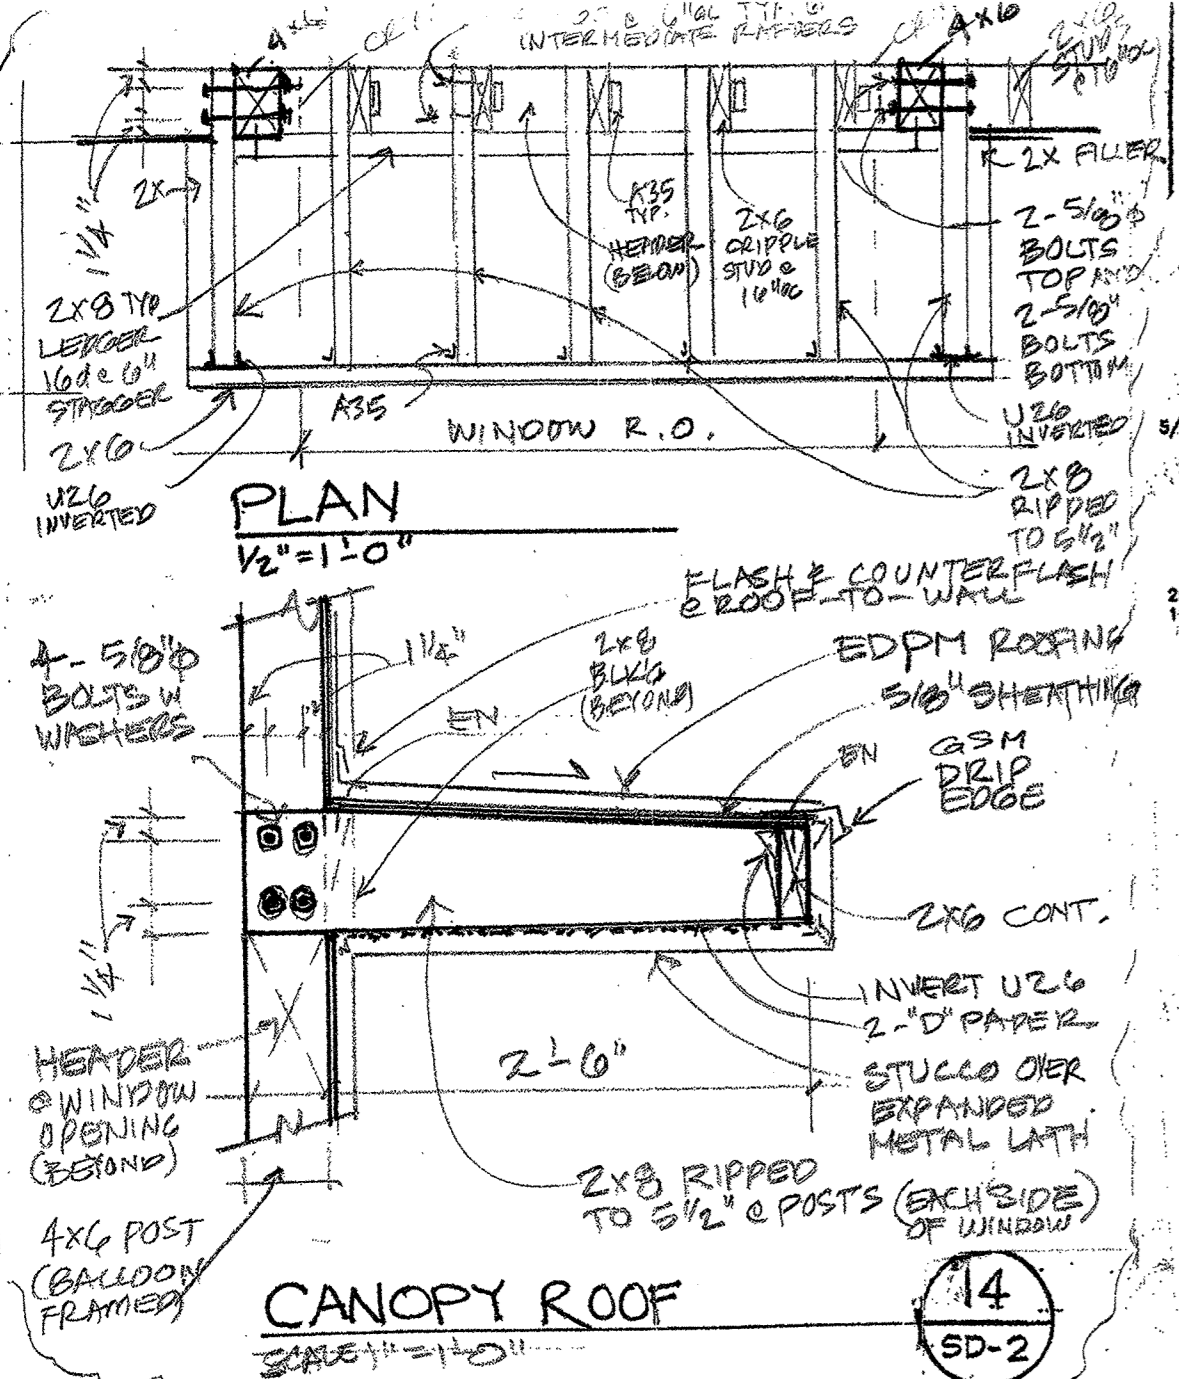 4x6
INTERMEDIATE RAFTERS
4x6
2x6
STUDS
@ 16"oc
2X
1 1/4"
2X FILLER
A35
TYP.
HEADER
(BELOW)
2x6
CRIPPLE
STUD @
16"oc
2-5/8"φ
BOLTS
TOP AND
2-5/8"
BOLTS
BOTTOM
2x8 TYP
LEDGER
16d @ 6"
STAGGER
2x6
U26
INVERTED
A35
WINDOW R.O.
U26
INVERTED
2x8
RIPPED
TO 5 1/2"
5/
PLAN
1/2"=1'-0"
FLASH & COUNTERFLASH
@ ROOF-TO-WALL
4-5/8"φ
BOLTS W
WASHERS
1 1/4"
2x8
BLK'G
(BEYOND)
EDPM ROOFING
5/8" SHEATHING
EN
EN
GSM
DRIP
EDGE
2
1
1 1/4"
2x6 CONT.
INVERT U26
2-"D" PAPER
STUCCO OVER
EXPANDED
METAL LATH
HEADER
@ WINDOW
OPENING
(BEYOND)
2'-6"
2x8 RIPPED
TO 5 1/2" @ POSTS (EACH SIDE)
OF WINDOW
4x6 POST
(BALLOON
FRAMED)
CANOPY ROOF
SCALE 1"=1'-0"
14
SD-2